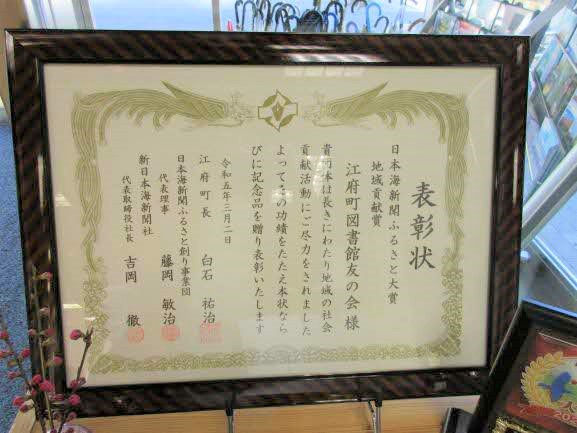 表彰状
日本海新聞ふるさと大賞
地域貢献賞
江府町図書館友の会様
貴団体は長きにわたり地域の社会
貢献活動にご尽力をされました
よってその功績をたたえ本状なら
びに記念品を贈り表彰いたします
令和五年三月二日
江府町長 白石 祐治
日本海新聞ふるさと創り事業団
代表理事 藤岡 敏治
新日本海新聞社
代表取締役社長 吉岡 徹